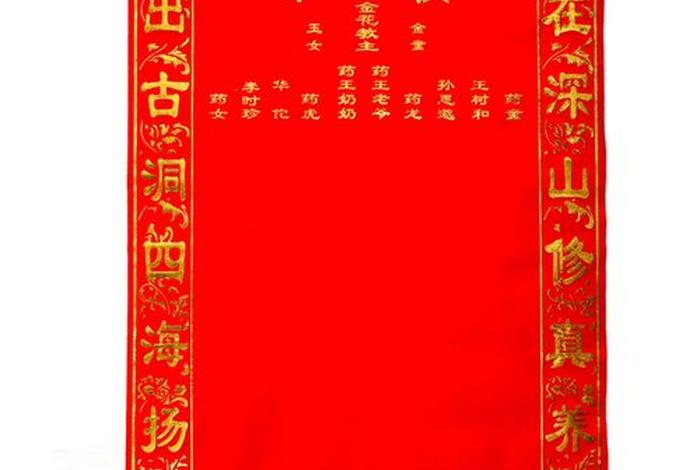 在深山修真养
金童
金花教主
玉女
药童
王树和
孙思邈
药龙
药王老爷
药王奶奶
药虎
华佗
李时珍
药女
出古洞四海扬